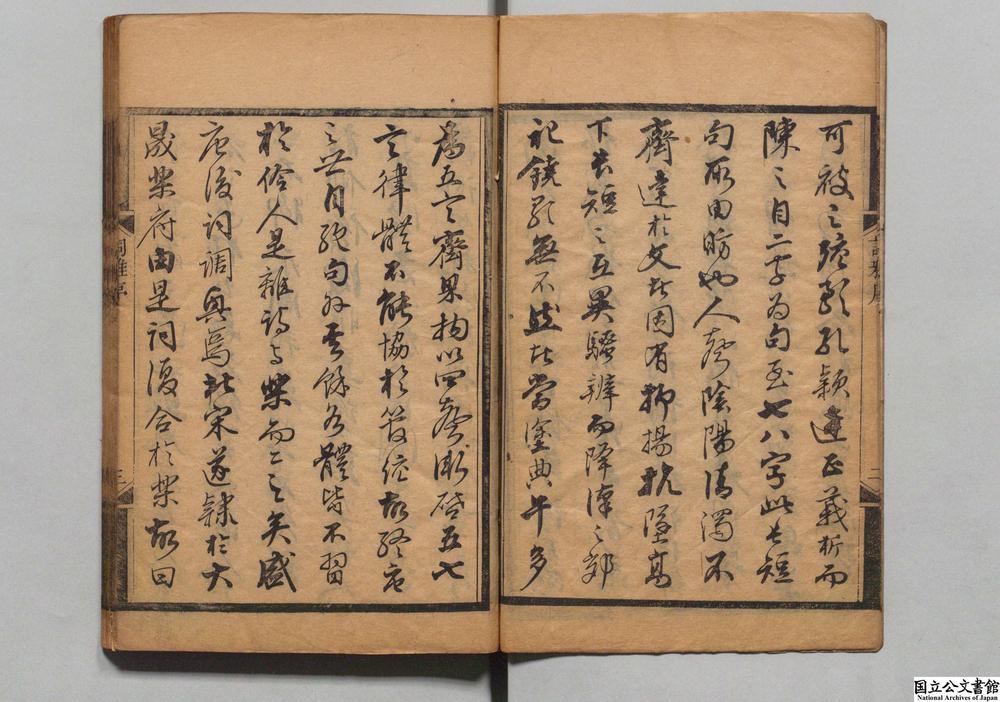 可被之弦歌孔穎達正義析而
陳之自二字為句至七八字此長短
句所由昉也人聲陰陽清濁不
齊達於文者因有抑揚抗墜高
下長短之互異騷辨而降漢之郊
祀鐃歌無不然者當塗典午多
為五言齊梁拘以四聲漸啟五七
言律體不能協於管絃故終唐
之世自絕句外其餘各體皆不習
於伶人是離詩与樂而二之矣盛
唐後詞調興焉北宋遂隸於大
晟樂府由是詞復合於樂故曰
三
国立公文書館
National Archives of Japan